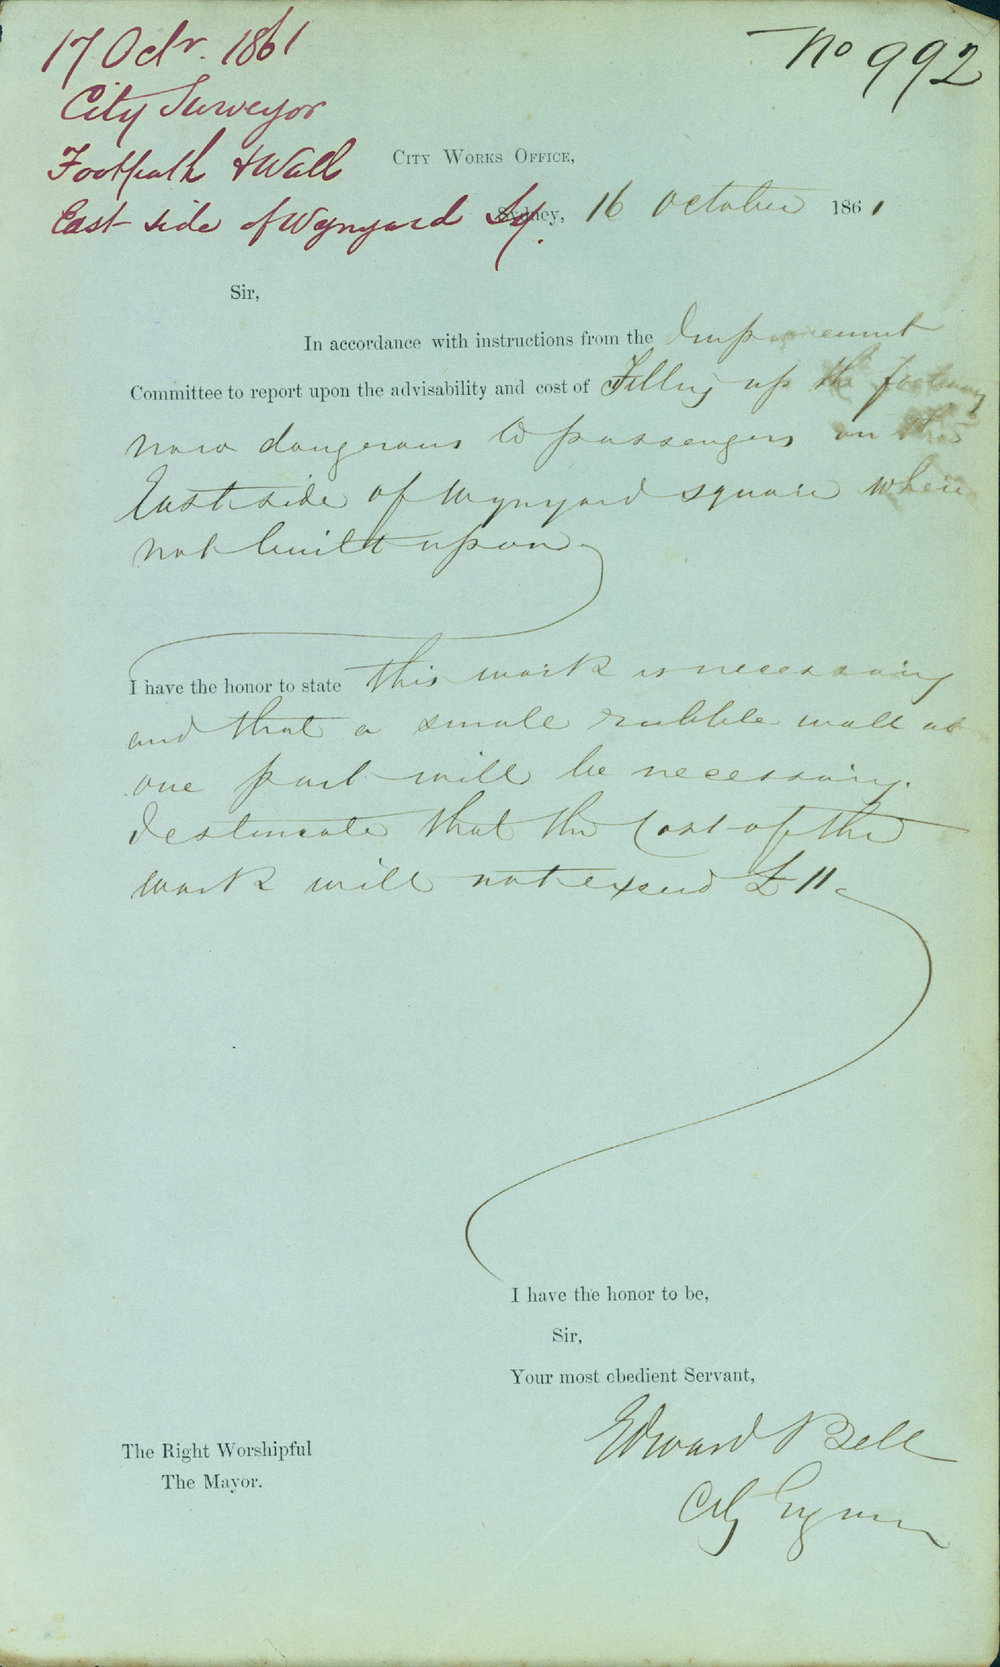 17 Octr. 1861
No 992
City Surveyor
Footpath & Wall
East side of Wynyard Sq.
City Works Office,
Sydney, 16 October 1861
Sir,
In accordance with instructions from the Improvement
Committee to report upon the advisability and cost of Filling up the footway
now dangerous to passengers on the
East side of Wynyard square where
not built upon
I have the honor to state this work is necessary
and that a small rubble wall at
one part will be necessary.
I estimate that the Cost of the
work will not exceed £11
I have the honor to be,
Sir,
Your most obedient Servant,
Edward Bell
City Engineer
The Right Worshipful
The Mayor.